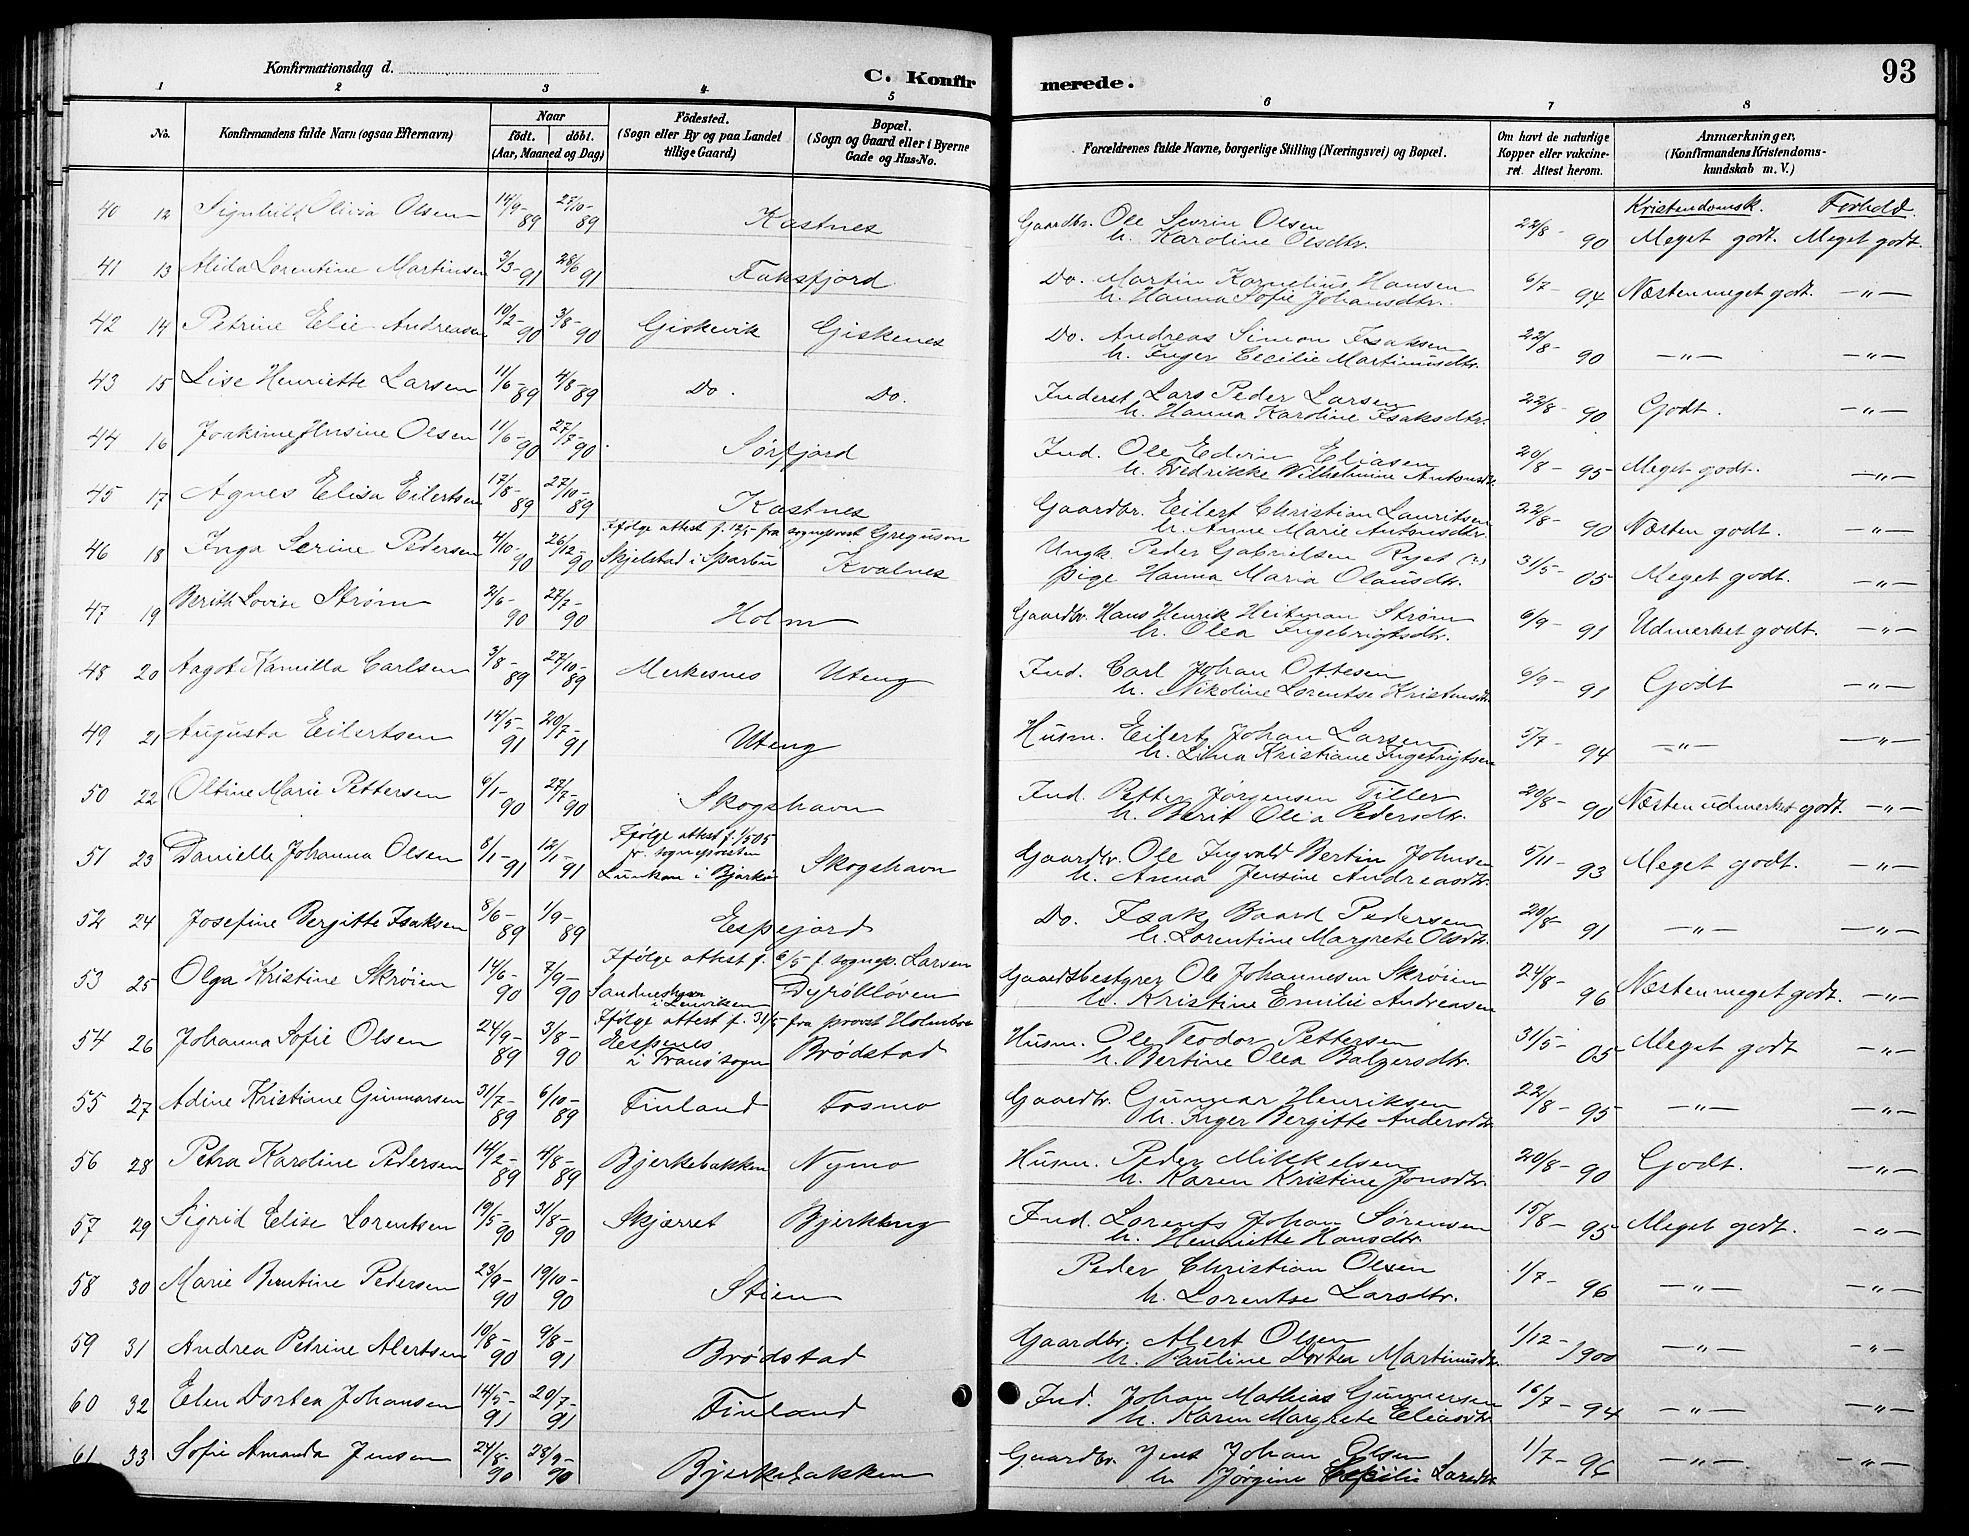 Konfirmationsdag d.
C. Konfirmerede.
93
1 2 3 4 5 6 7 8
No. Konfirmandens fulde Navn (ogsaa Efternavn) Naar födt. döbt. (Aar, Maaned og Dag) Födested. (Sogn eller By og paa Landet tillige Gaard) Bopæl. (Sogn og Gaard eller i Byerne Gade og Hus-No. Forældrenes fulde Navne, borgerlige Stilling (Næringsvei) og Bopæl. Om havt de naturlige Kopper eller vakcineret. Attest herom. Anmærkninger. (Konfirmandens Kristendomskundskab m. V.)
Kristendomsk. Forhold.
40 12 Signhild Olivia Olsen 14/9-89 27/10-89 Kastnes Gaardbr. Ole Sevrin Olsen h. Karoline Olsdtr. 22/8-90 Meget godt. Meget godt.
41 13 Alida Lorentine Martinsen 3/3-91 28/6 91 Faksfjord Do. Martin Kornelius Hansen h. Hanna Sofie Johansdtr. 6/7-94 Næsten meget godt. -"-
42 14 Petrine Elie Andreasen 10/2-90 3/8-90 Giskevik Giskenes Do. Andreas Simon Isaksen h. Inger Cecilie Martinusdtr. 22/8-90 -"- -"-
43 15 Lise Henriette Larsen 11/6-89 4/8-89 Do. Do. Inderst Lars Peder Larsen h. Hanna Karoline Isaksdtr. 22/8-90 Godt. -"-
44 16 Joakime Jensine Olsen 11/6-90 27/7-90. Sørfjord Ind. Ole Edvin Eliasen h. Fredrikke Wilhelmine Antonsdt. 20/8-95 Meget godt. -"-
45 17 Agnes Elisa Eilertsen 17/8-89 27/10-89 Kastnes Gaardbr. Eilert Christian Lauritsen h. Anne Marie Antonsdtr. 22/8-90 Næsten godt. -"-
46 18 Inga Serine Pedersen 4/10-90 26/12-90 Ifølge attest f. 12/5 fra sogneprest Greguson Skjelstad i Sparbu Kvalnes Ungk. Peder Gabrielsen Ryet (?) pige Hanna Maria Olausdtr. 31/5-05 Meget godt. -"-
47 19 Berith Lovise Strøm 2/6-90 27/7-90 Holm Gaardbr. Hans Henrik Heitman Strøm h. Olea Ingebrigtsdtr. 6/9-91 Udmerket godt. -"-
48 20 Aagot Kamilla Carlsen 3/8-89 27/10-89 Merkesnes Uteng Ind. Carl Johan Ottesen h. Nikoline Lorentse Kristensdt. 6/9-91 Godt -"-
49 21 Augusta Eilertsen 14/5-91 20/7-91 Uteng Husm. Eilert Johan Larsen h. Lina Kristiane Ingebrigtsen 5/7-94 -"- -"-
50 22 Oltine Marie Pettersen 6/1-90 27/7-90 Skogshavn Ind. Petter Jørgensen Tiller h. Berit Olia Pedersdtr. 20/8-90 Næsten udmerket godt. -"-
51 23 Danielle Johanna Olsen 8/1-91 12/1-91 Ifølge attest f. 1/5 05 fr. sognepresten Lunkan i Bjarkø Skogshavn Gaardbr. Ole Ingvald Bertin Johnsen h. Anna Jensine Andreasdtr. 5/11-93 Meget godt. -"-
52 24 Josefine Bergitte Isaksen 8/6-89 1/9-89 Espejord Do. Isak Baard Pedersen h. Lorentine Margrete Olsdtr. 20/8-91 -"- -"-
53 25 Olga Kristine Skrøien 14/6-90 7/9-90 Ifølge attest f. 6/5 f. sognep. Larsen Sandneshavn i Lenviken Dyrökløven Gaardsbestyrer Ole Johannesen Skrøien h. Kristine Emilie Andreasen 24/8-96 Næsten meget godt. -"-
54 26 Johanna Sofie Olsen 24/9-89 3/8-90 Ifølge attest f. 31/5-fra provst Holmboe Espenes i Tranø sogn Brödstad Husm. Ole Teodor Pettersen h. Bertine Olea Balgersdtr. 31/5-05 Meget godt -"-
55 27 Adine Kristinne Gunnarsen 31/7-89 6/10-89 Finland Fosmo Gaardbr. Gunnar Henriksen h. Inger Bergitte Andersdtr 22/8-95 -"- -"-
56 28 Petra Karoline Pedersen 14/2-89 4/8-89 Bjerkebakken Nymo Husm. Peder Mikkelsen h. Karen Kristine Jonsdtr. 20/8-90 Godt. -"-
57 29 Sigrid Elise Lorentsen 19/5-90 31/8-90 Skjærret Bjerkeng Ind. Lorents Johan Sørensen h. Henriette Hansdtr. 15/8-95 Meget godt. -"-
58 30 Marie Berntine Pedersen 23/9-90 19/10-90 Stien Peder Christian Olsen h. Lorentse Larsdtr. 1/7-96 -"- -"-
59 31 Andrea Petrine Alertsen 10/8-90 9/8-91 Brødstad Gaardbr. Alert Olsen h. Pauline Dortea Martinusdtr. 1/12-1900 -"- -"-
60 32 Elen Dortea Johansen 14/5-91 20/7-91 Finland Ind. Johan Mathias Gunnersen h. Karen Margrete Eliasdtr 16/7-94 -"- -"-
61 33 Sofie Amanda Jensen 24/8-90 28/9-90 Bjerkebakken Gaardbr. Jens Johan Olsen h. Jørgine Larsdtr 1/7-96 -"- -"-